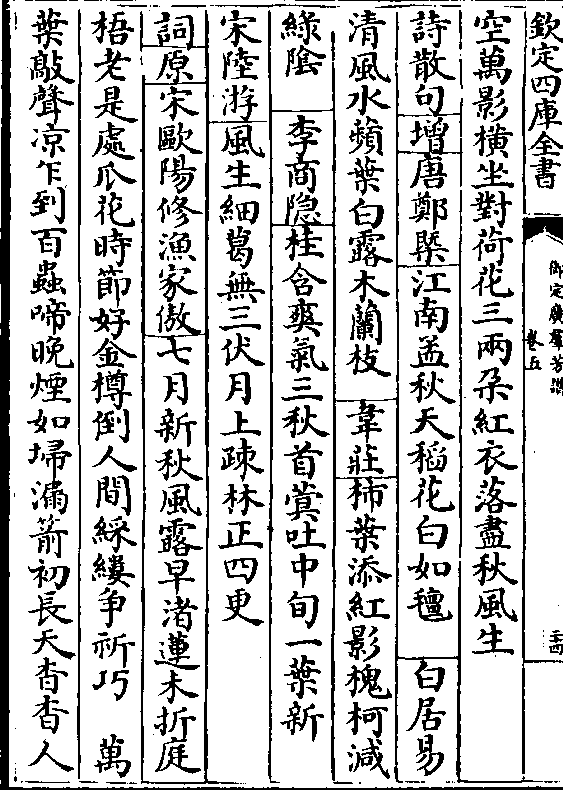 欽定四庫全書
御定廣羣芳譜
卷五
空萬影橫坐對荷花三兩朶紅衣落盡秋風生
詩散句增唐鄭槩江南孟秋天稻花白如氊　白居易
清風水蘋葉白露木蘭枝　韋莊柿葉添紅影槐柯減
綠陰　李商隐桂含爽氣三秋首蓂吐中旬一葉新
宋陸游風生細葛無三伏月上疎林正四更
詞原宋歐陽修漁家傲七月新秋風露早渚蓮未折庭
梧老是處瓜花時節好金樽倒人間綵縷争祈巧　萬
葉敲聲凉乍到百蟲啼晚煙如埽漏箭初長天杳杳人